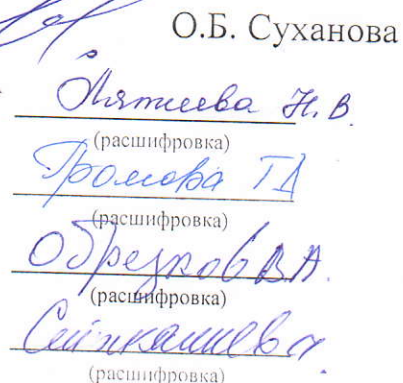 О.Б. Суханова
Н.В.
(расшифровка)
Громова ТД
(расшифровка)
Обрезков В.А.
(расшифровка)
(расшифровка)